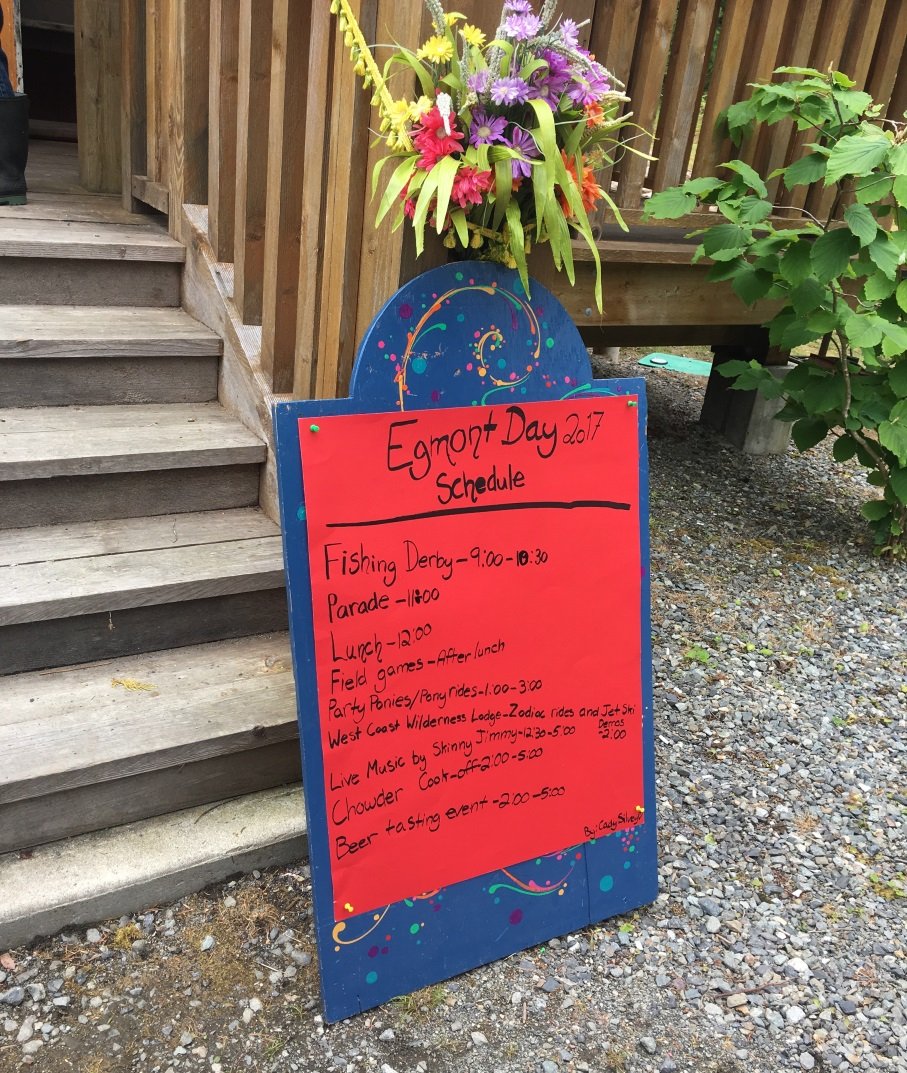 Egmont Day 2017
Schedule
Fishing Derby-9:00-10:30
Parade-11:00
Lunch-12:00
Field games-After lunch
Party Ponies/Pony rides-1:00-3:00
West Coast Wilderness Lodge-Zodiac rides and Jet Ski
Demos
-2:00
Live Music by Skinny Jimmy-12:30-5:00
Chowder Cook-off-2:00-5:00
Beer tasting event-2:00-5:00
By: Cady